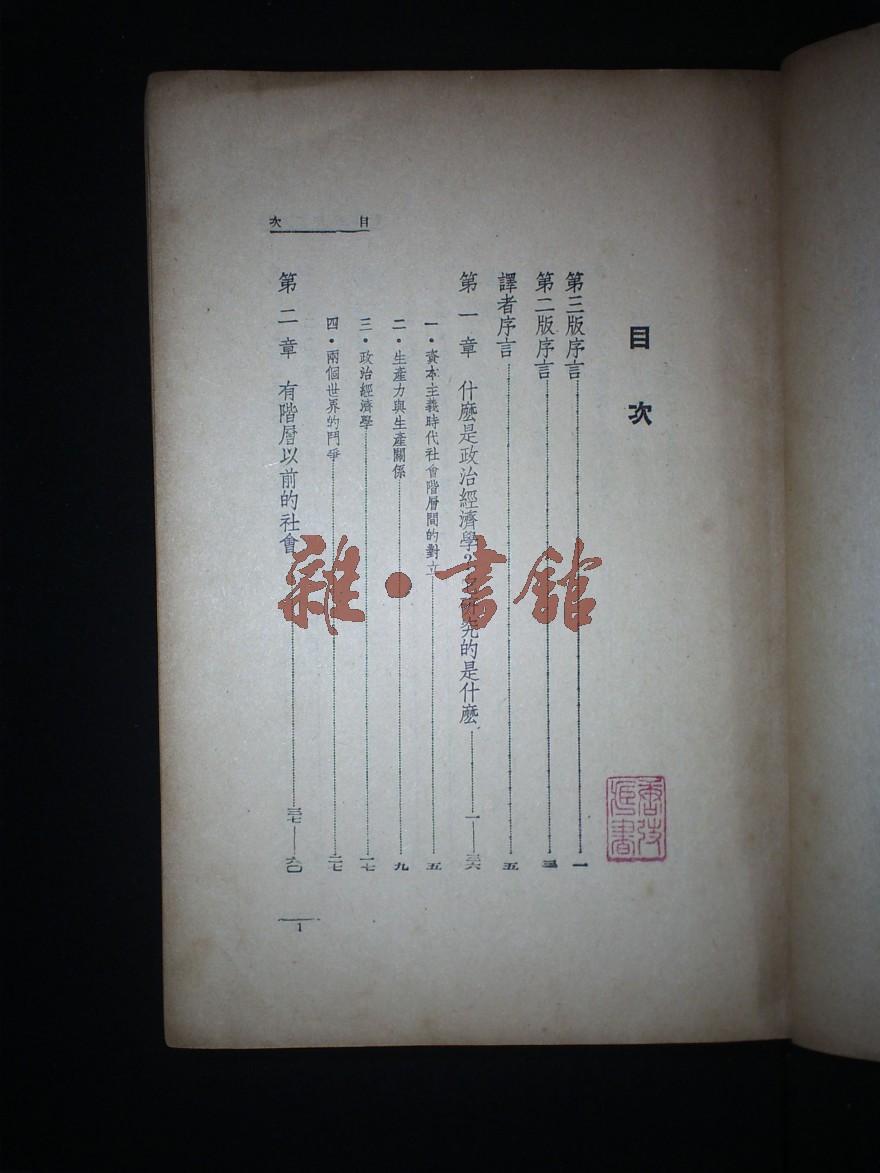 目次
第三版序言 一
第二版序言 三
譯者序言 五
第一章 什麼是政治經濟學?研究的是什麼 一—三六
一·資本主義時代社會階層間的對立 五
二·生產力與生產關係 九
三·政治經濟學 一七
四·兩個世界的鬥爭 二七
第二章 有階層以前的社會 三七—六〇
目次
1
雜·書館